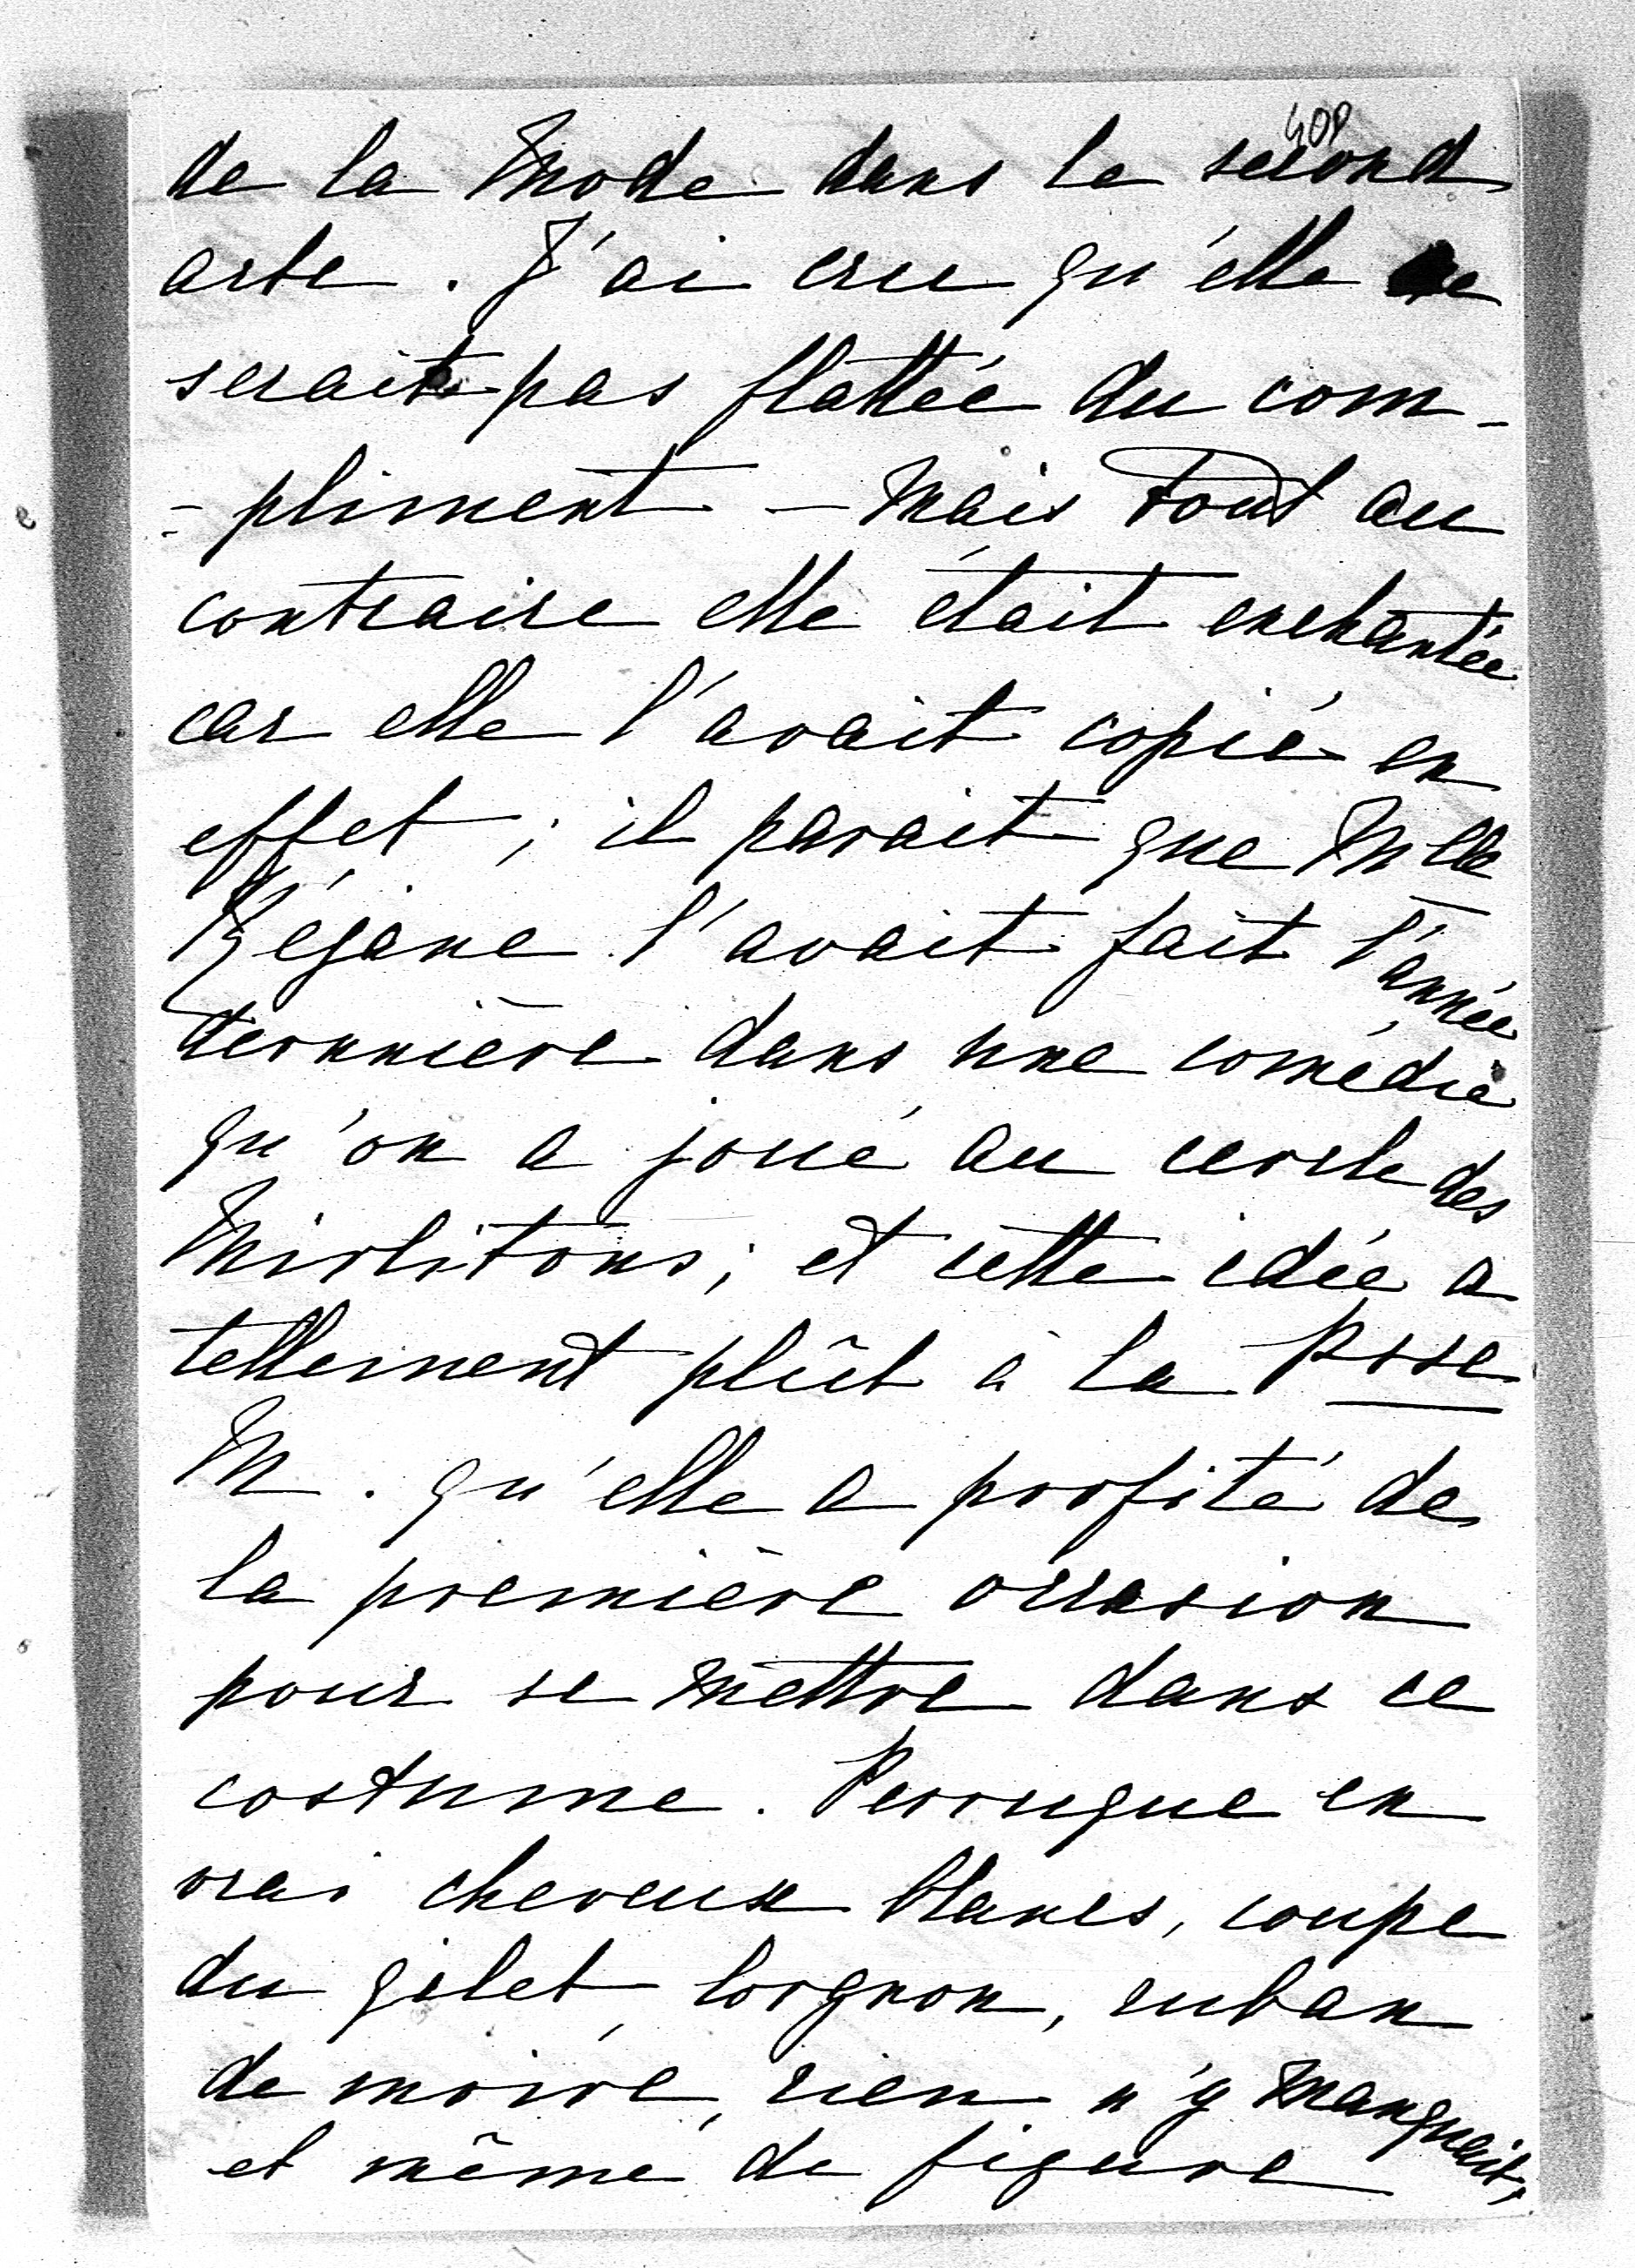 de la Mode dans le second
acte. J'ai cru qu'elle ne
serait pas flattée du com-
-pliment – Mais tout au
contraire elle était enchantée
car elle l'avait copié en
effet ; il parait que Mlle
Réjane l'avait fait l'année
dernnière dans une comédie
qu'on a joué au cercle des
Mirlitons ; et cette idée a
tellement plût à la Psse
M. qu'elle a profité de
la première occasion
pour se mettre dans ce
costume. Perruque en
vrai cheveux blancs, coupe
du gilet, lorgnon, ruban
de moire, rien n'y manquait,
et même de figure